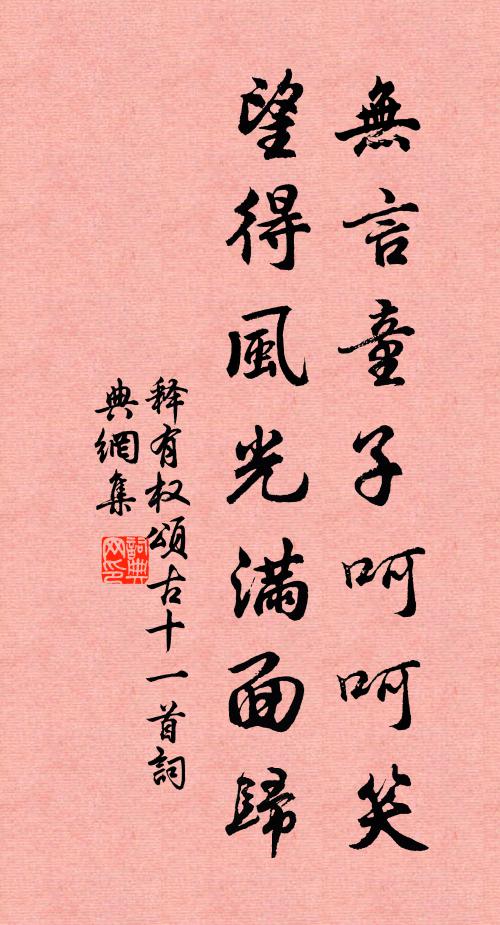 無言童子呵呵笑
望得風光滿面歸
释有权頌古十一首詞
典網集
詞典網印